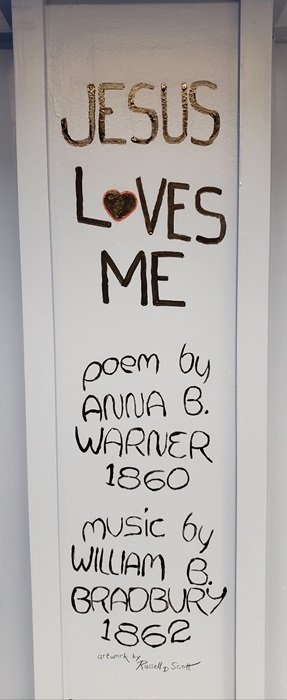 JESUS
LOVES
ME
poem by
ANNA B.
WARNER
1860
music by
WILLIAM B.
BRADBURY
1862
artwork by Russell D Scott